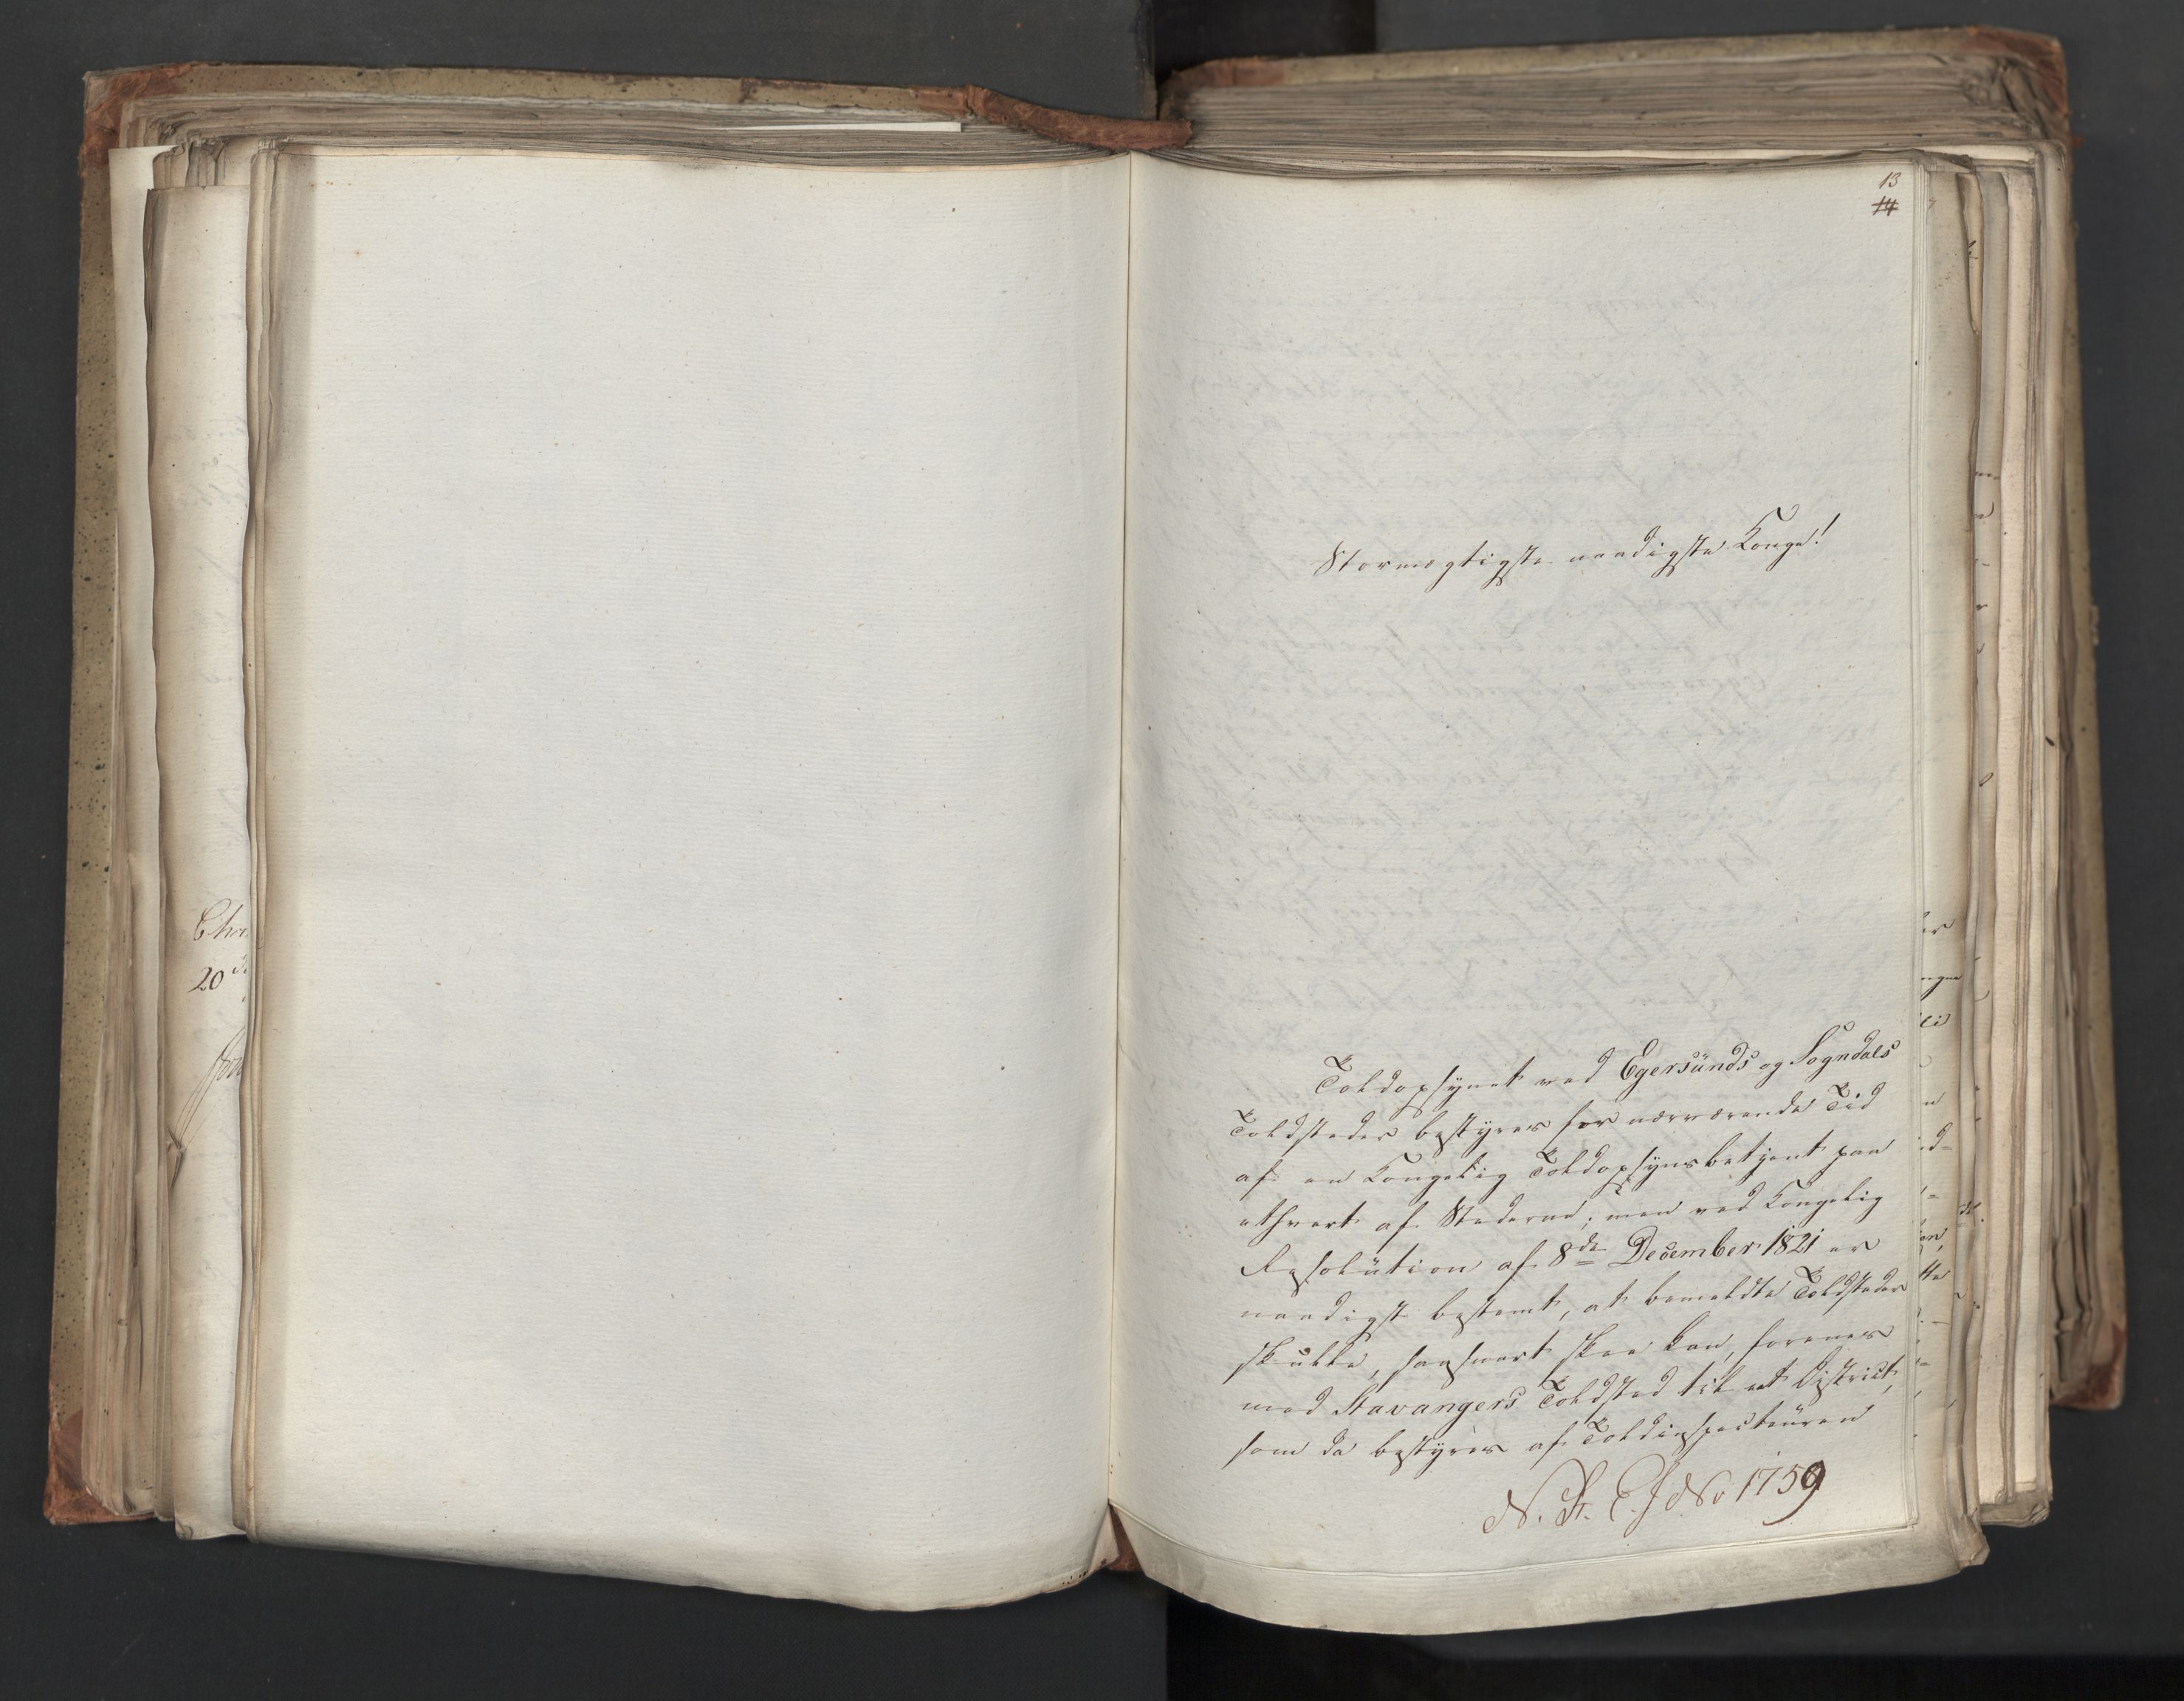 13
14
Stormægtigste naadigste Konge!
Toldopsynet ved Egersünds og Sogndals
Toldsteder bestyres for nærværende Tid
af en Kongelig Toldopsynsbetjent paa
ethvert af Stederne; men ved Kongelig
Resolution af 8de December 1821 er
naadigst bestemt, at bemeldte Toldsteder
skulle, saasnart skee kan, forenes
med Stavangers Toldsted til eet District,
som da bestyres af Toldinspecteuren
No 1759
Chri
20de